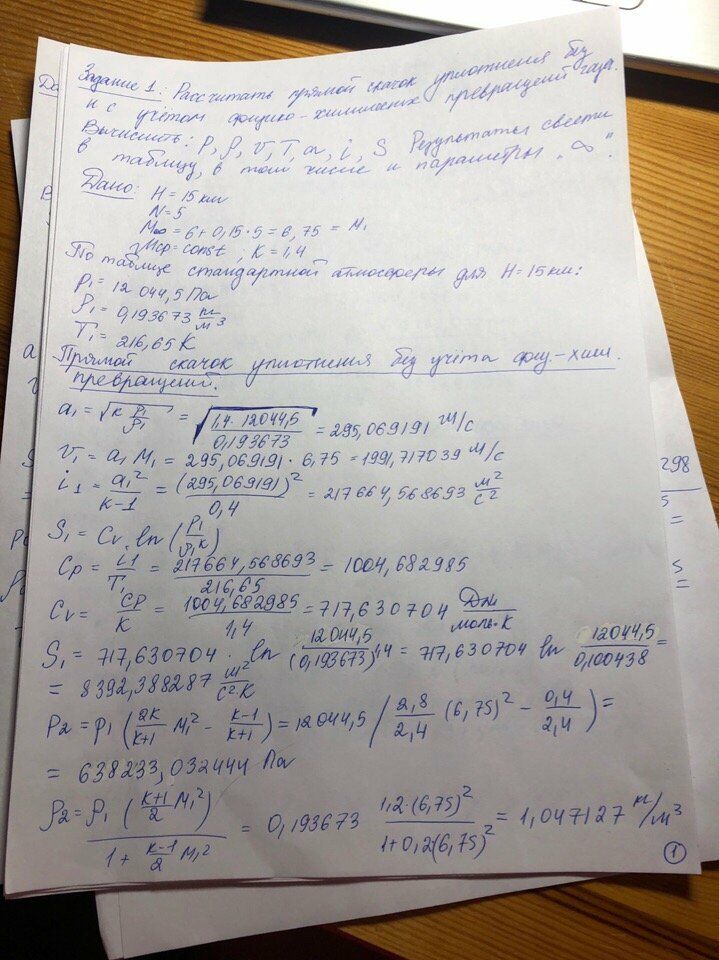 Задание 1: Рассчитать прямой скачок уплотнения без
и с учётом физико-химических превращений газа.
Вычислить: P, ρ, v, T, a, i, S Результаты свести
в таблицу, в том числе и параметры "∞".
Дано: H = 15 км
N = 5
M∞ = 6 + 0,15·5 = 6,75 = M₁
Mср = const, K = 1,4
По таблице стандартной атмосферы для H = 15 км:
P₁ = 12 044,5 Па
ρ₁ = 0,193673 кг/м³
T₁ = 216,65 K
Прямой скачок уплотнения без учёта физ-хим.
превращений.
a₁ = √(K P₁/ρ₁) = √(1,4·12044,5/0,193673) = 295,069191 м/с
V₁ = a₁ M₁ = 295,069191 · 6,75 = 1991,717039 м/с
i₁ = a₁²/(K-1) = (295,069191)²/0,4 = 217664,568693 м²/с²
S₁ = Cv ln (P₁/ρ₁ᴷ)
Cp = i1/T₁ = 217664,568693/216,65 = 1004,682985
Cv = Cp/K = 1004,682985/1,4 = 717,630704 Дж/моль·К
S₁ = 717,630704 · ln 12044,5/(0,193673)^1,4 = 717,630704 ln 12044,5/0,100438 =
= 8392,388287 м²/с²·К
P₂ = P₁ (2K/(K+1) M₁² - (K-1)/(K+1)) = 12044,5 (2,8/2,4 (6,75)² - 0,4/2,4) =
= 638233,032444 Па
ρ₂ = ρ₁ ((K+1)/2 M₁²)/(1 + (K-1)/2 M₁²) = 0,193673 1,2·(6,75)²/(1+0,2(6,75)²) = 1,047127 кг/м³
1
298
5
=
5
=